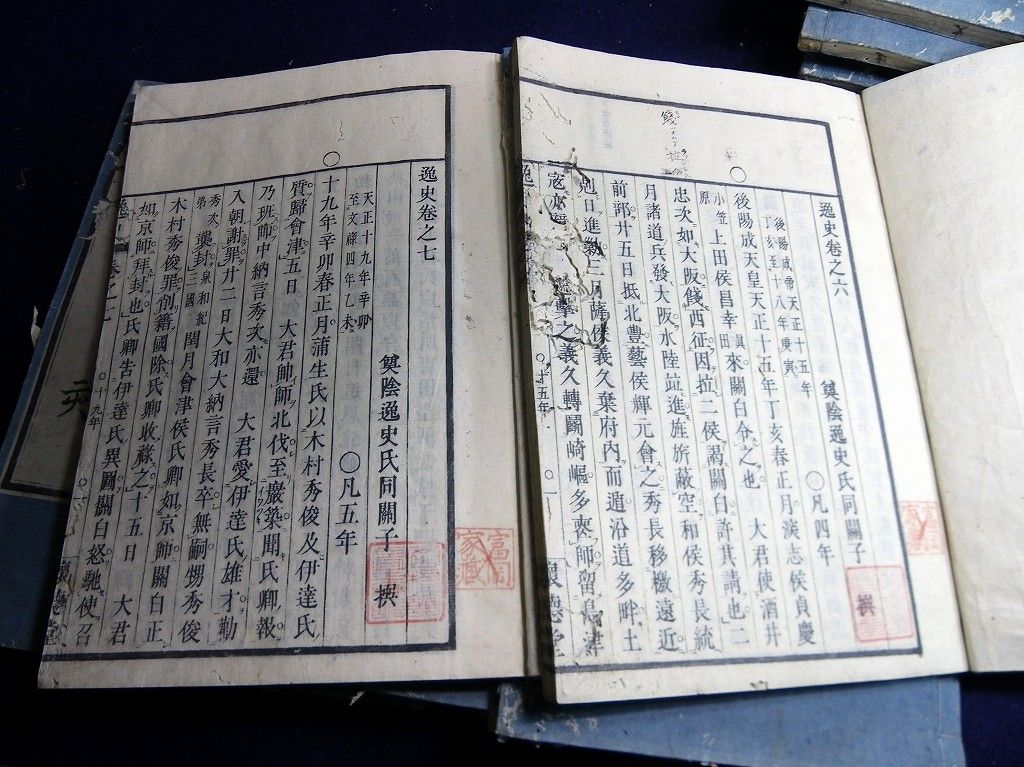 逸史卷之六
後陽成帝天正十五年
丁亥至十八年庚寅
○凡四年
奠陰逸史氏同關子 撰
○後陽成天皇天正十五年丁亥春正月
小笠原
上田侯昌幸
眞田
來關白令之也 大君使酒井
忠次如大阪餞西征因拉二侯謁關白許其請也二
月諸道兵發大阪水陸竝進旌旂蔽空和侯秀長統
前部廿五日抵北豐藝侯輝元會之秀長移檄遠近
剋日進
三月薩
義久棄府内而遁沿道多畔土
擊之義久轉鬭崎嶇多喪師留島津
十五年
富岡
家藏
逸史卷之七
天正十九年辛卯
至文祿四年乙未
○凡五年
奠陰逸史氏同關子 撰
○十九年辛卯春正月蒲生氏以木村秀俊及伊達氏
質歸會津五日 大君帥師北伐至巖築聞氏卿報
乃班師中納言秀次亦還 大君愛伊達氏雄才勸
入朝謝罪廿二日大和大納言秀長卒無嗣甥秀俊
秀次弟
襲封
泉和紀三國
閏月會津侯氏卿如京師關白正
木村秀俊罪削籍國除氏卿收葆之十五日 大君
如京師拜封也氏卿告伊達氏異圖關白怒馳使召
十九年
富岡
家藏